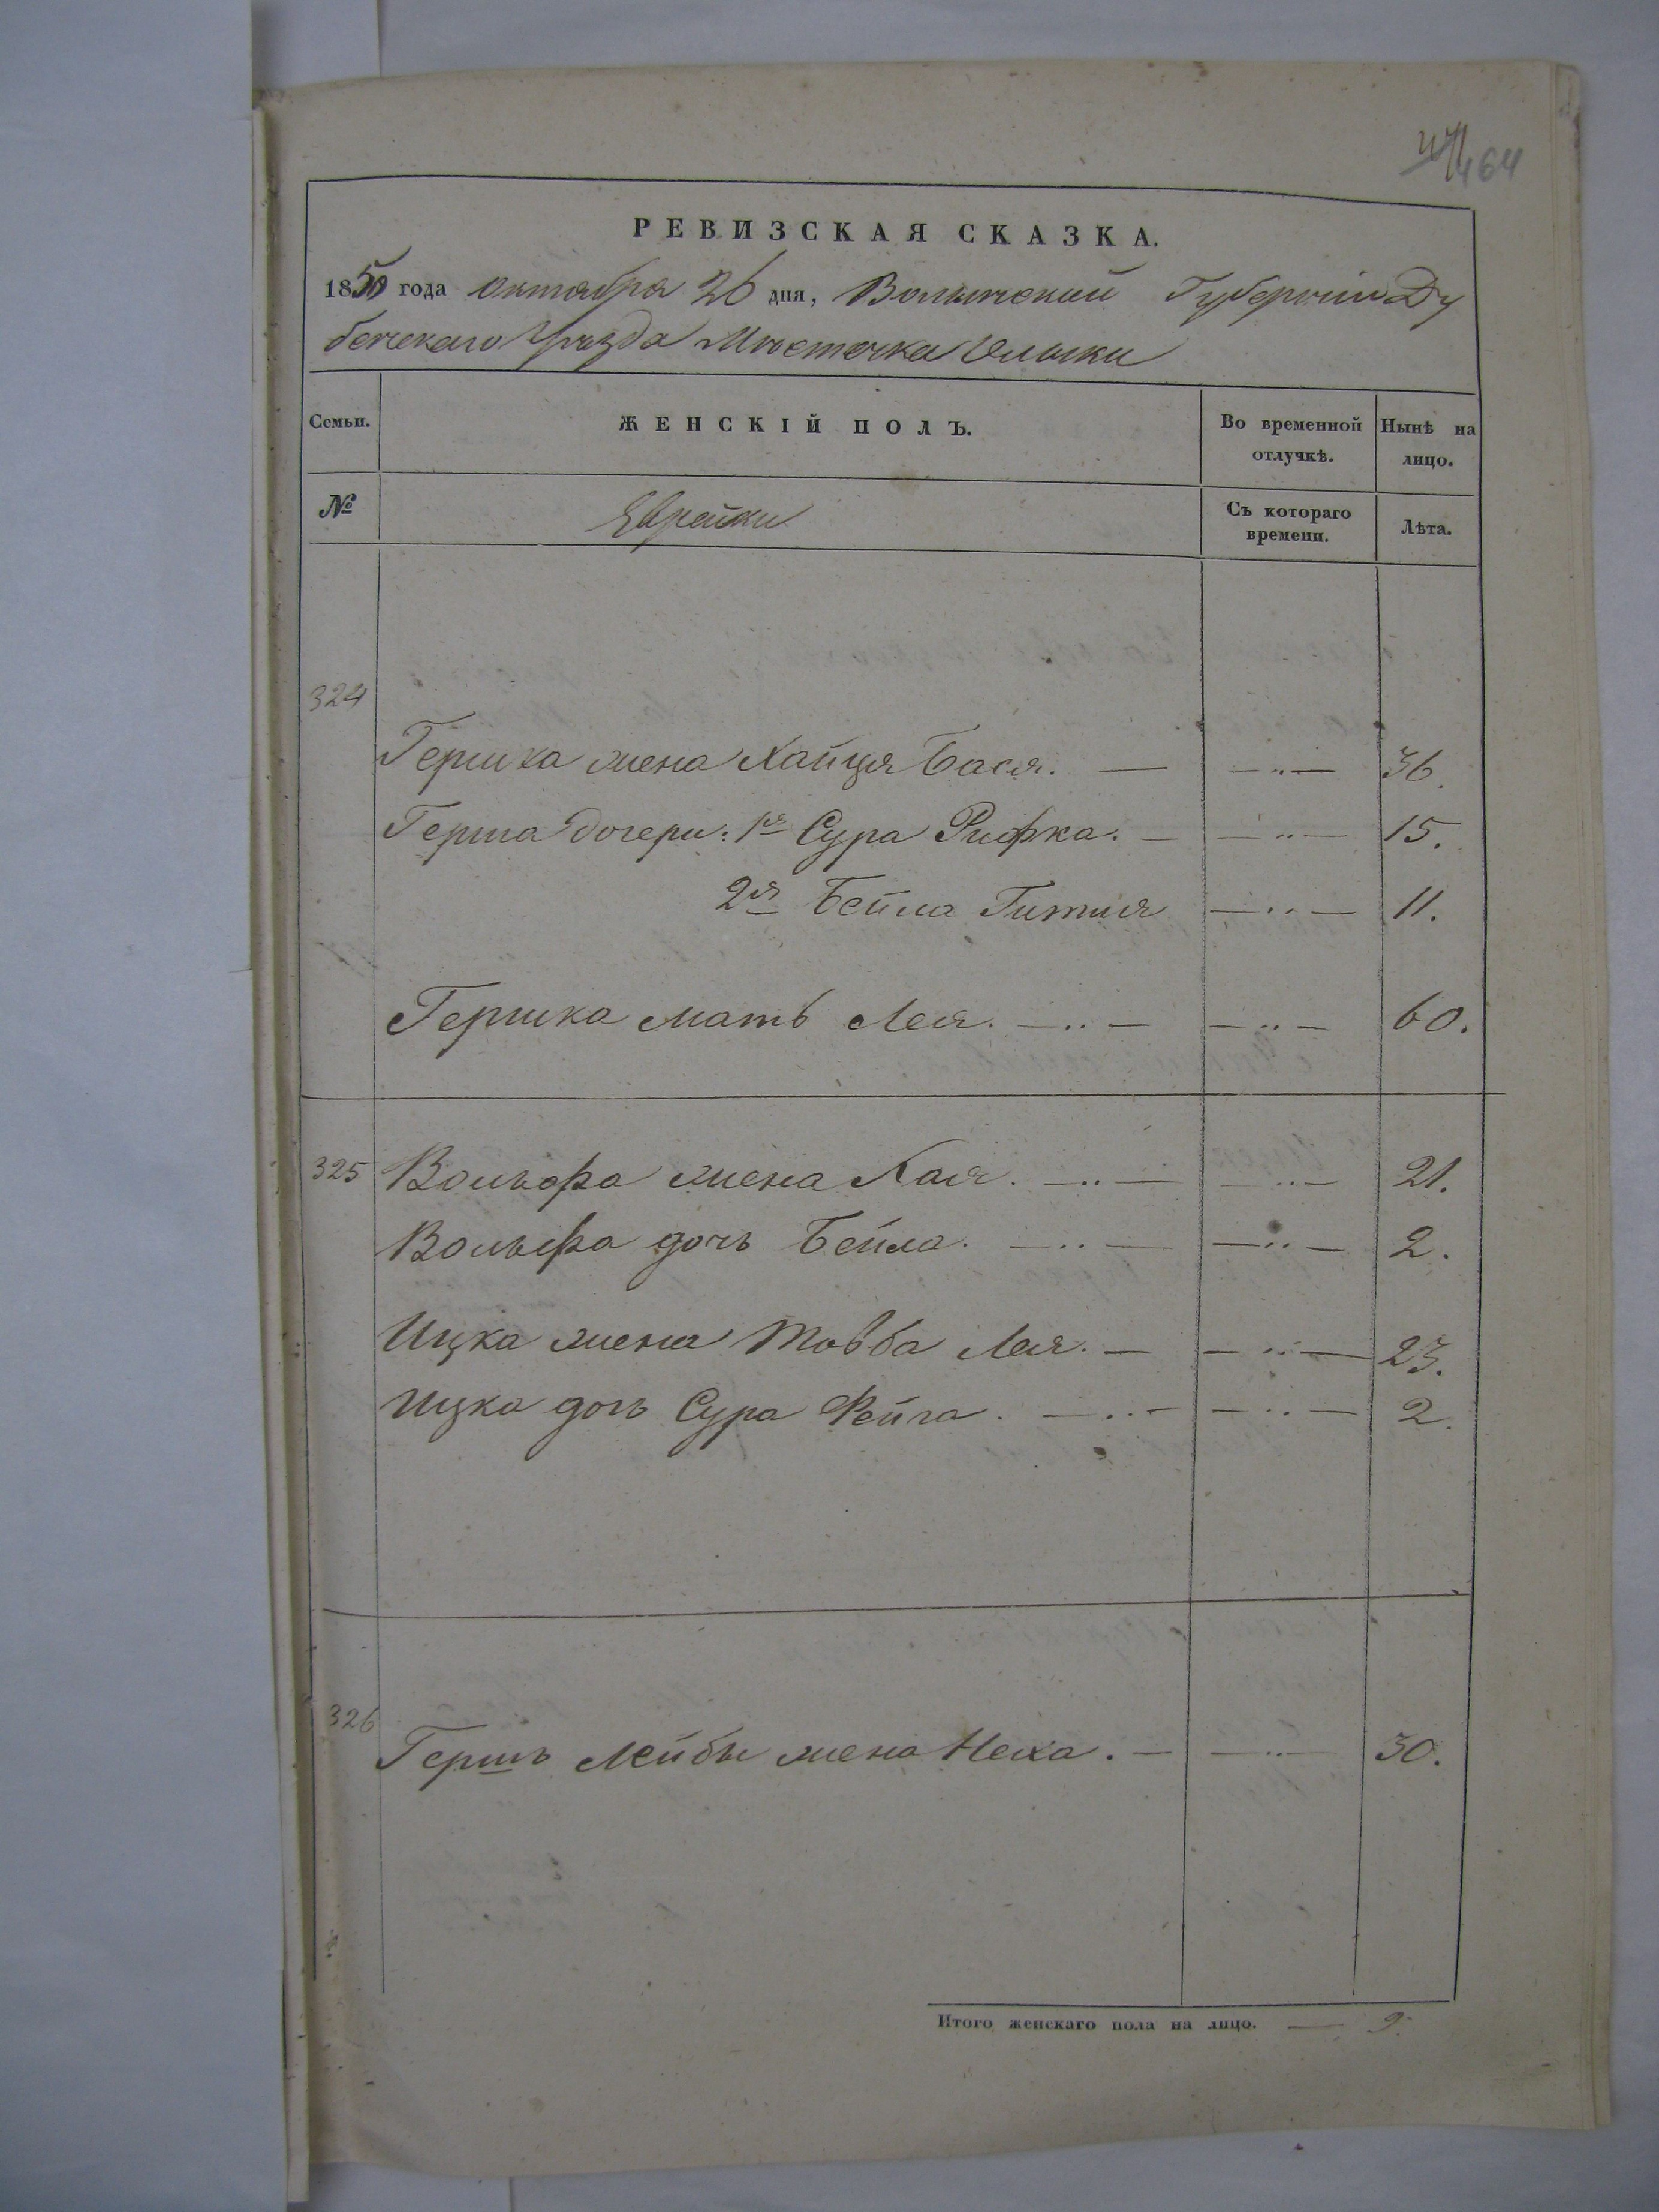 464
РЕВИЗСКАЯ СКАЗКА.
1850 года октября 26 дня, Волынской Губернии Ду
бенскаго Уѣзда Мѣстечка Олыки
Семьи.
ЖЕНСКІЙ ПОЛЪ.
Во временной отлучкѣ.
Нынѣ на лицо.
№
Еврейки
Съ котораго времени.
Лѣта.
324
Гершка жена Хайця Бася. — — „ — 36.
Герша дочери: 1я Сура Рифка. — — „ — 15.
2я Бейла Гитля — „ — 11.
Гершка мать Лея. — „ — — „ — 60.
325 Вольфа жена Хая. — „ — — „ — 21.
Вольфа дочь Бейла. — „ — — „ — 2.
Ицка жена Товба Лея. — — „ — 23.
Ицка дочь Сура Фейга. — „ — — „ — 2.
326
Гершъ Лейбы жена Неха. — — „ — 30.
Итого женскаго пола на лицо. — 9.